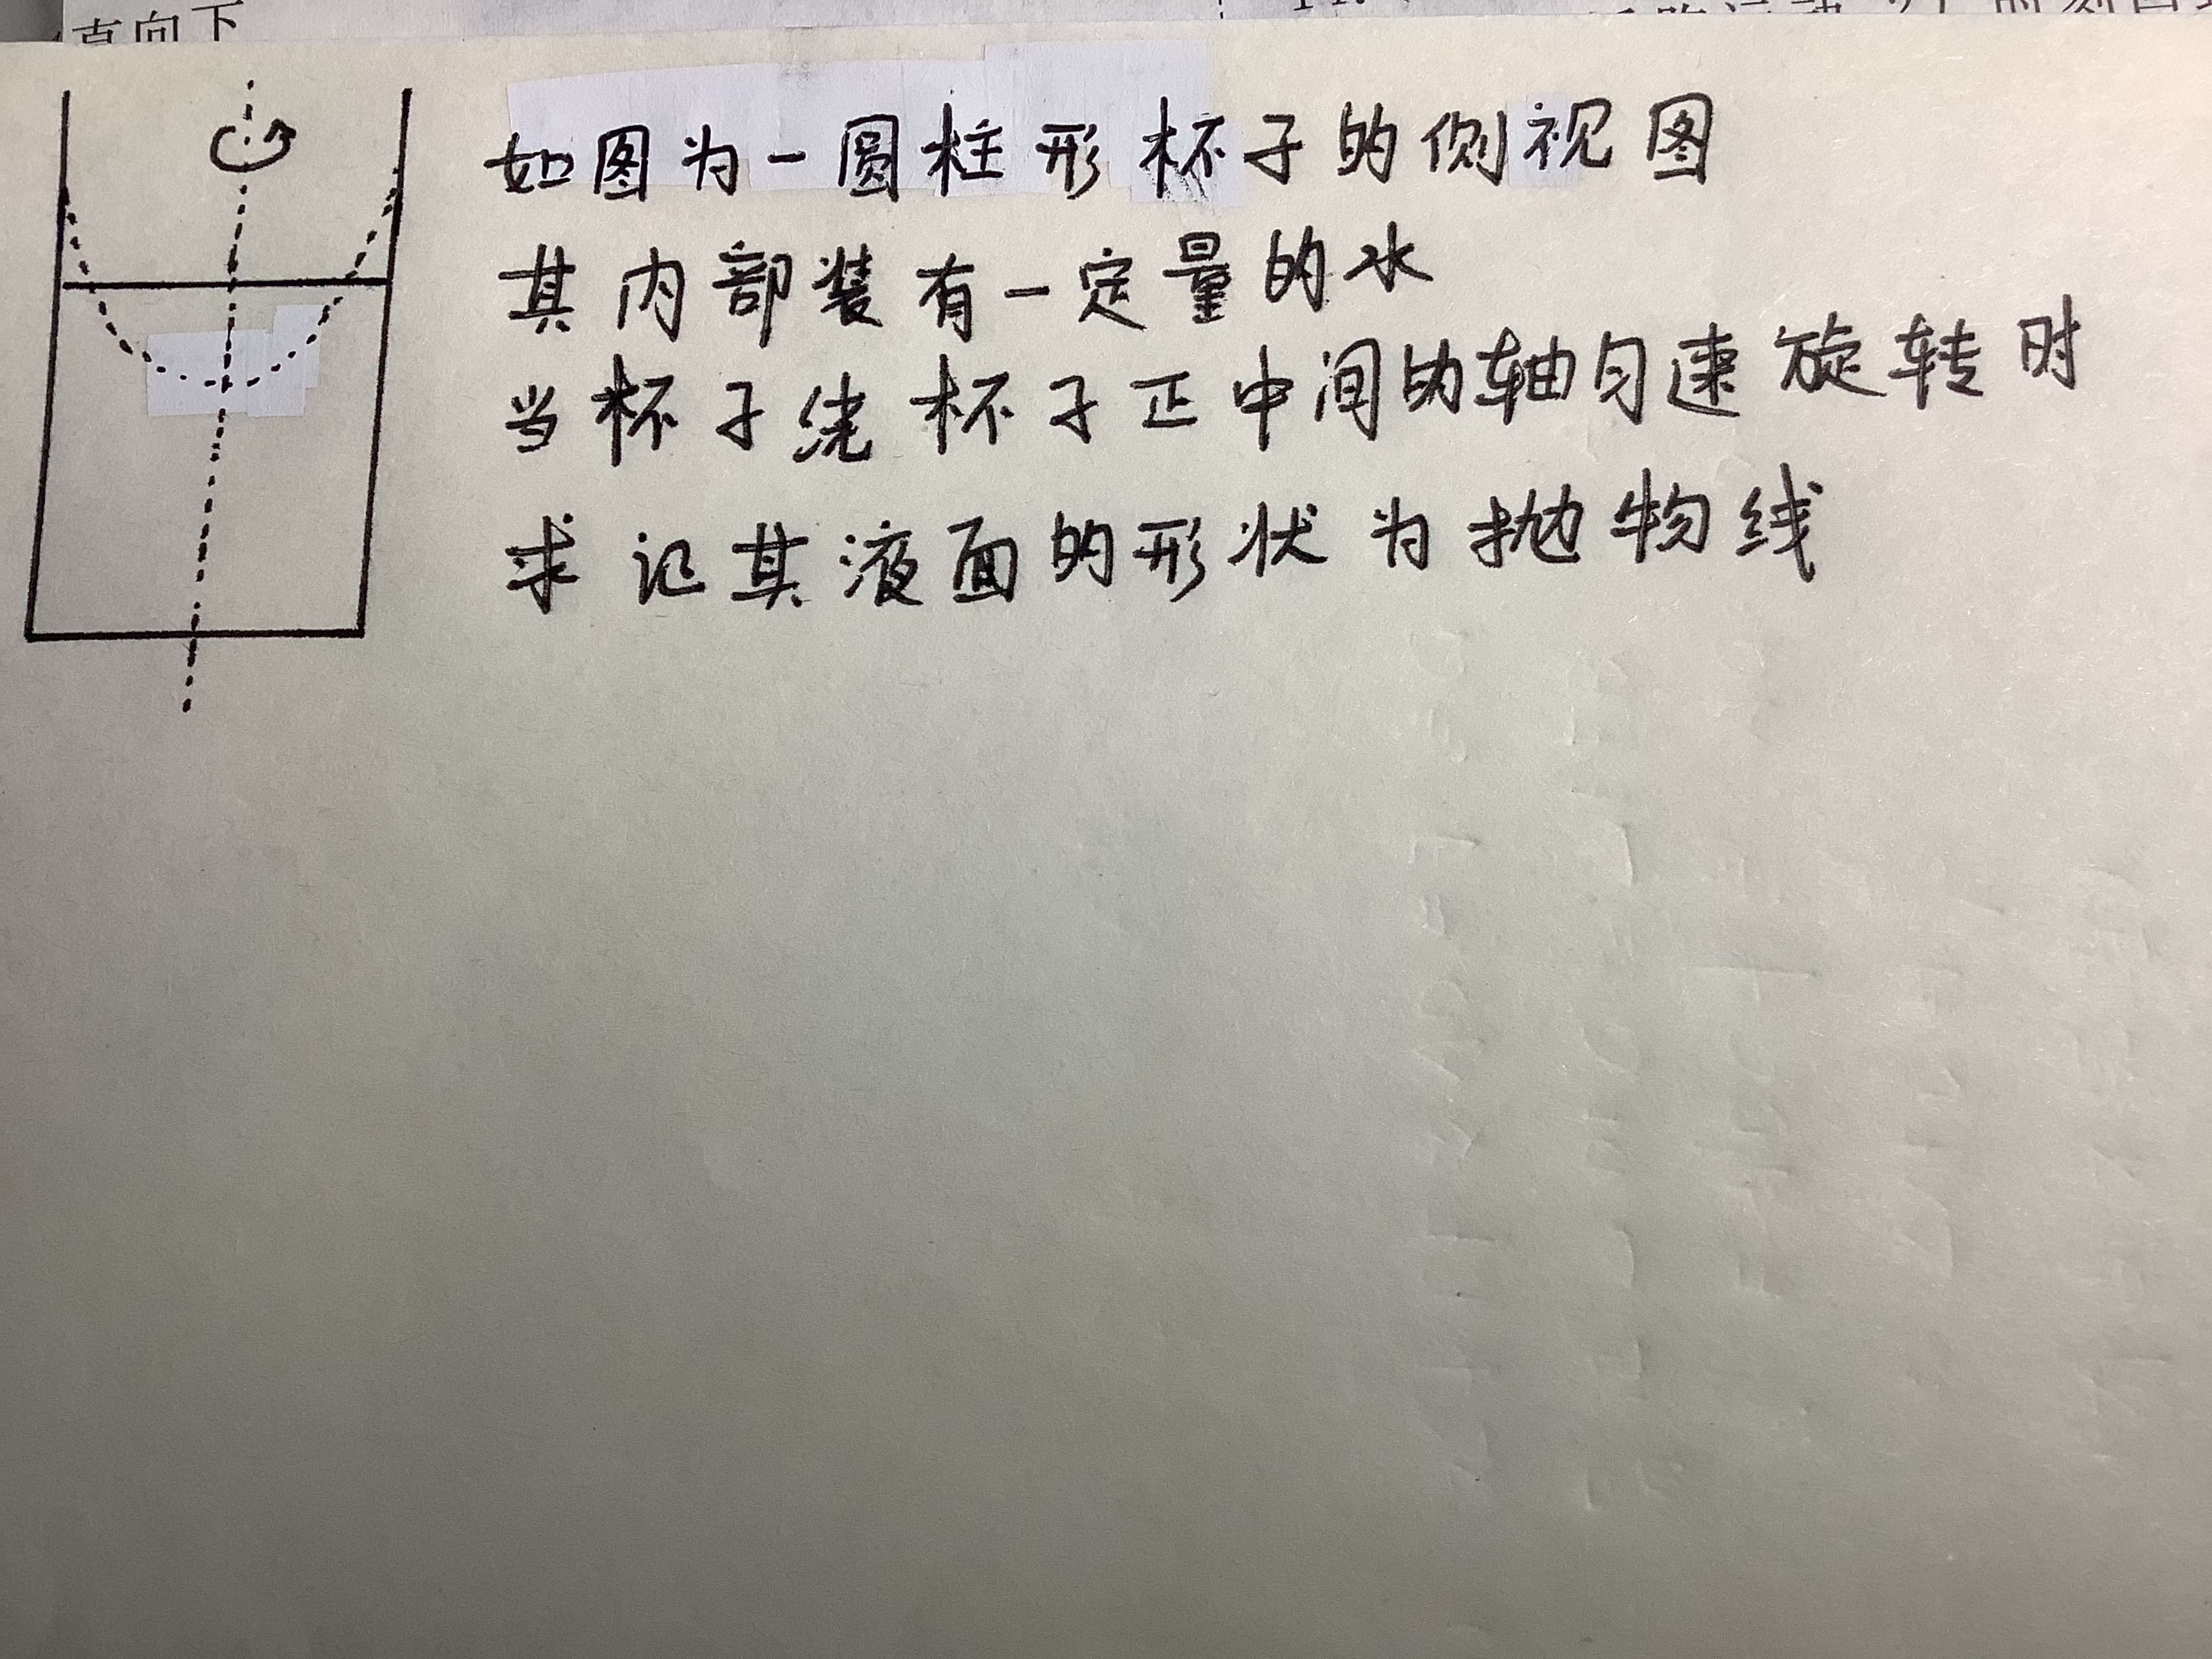 直向下
如图为一圆柱形杯子的侧视图
其内部装有一定量的水
当杯子绕杯子正中间的轴匀速旋转时
求证其液面的形状为抛物线